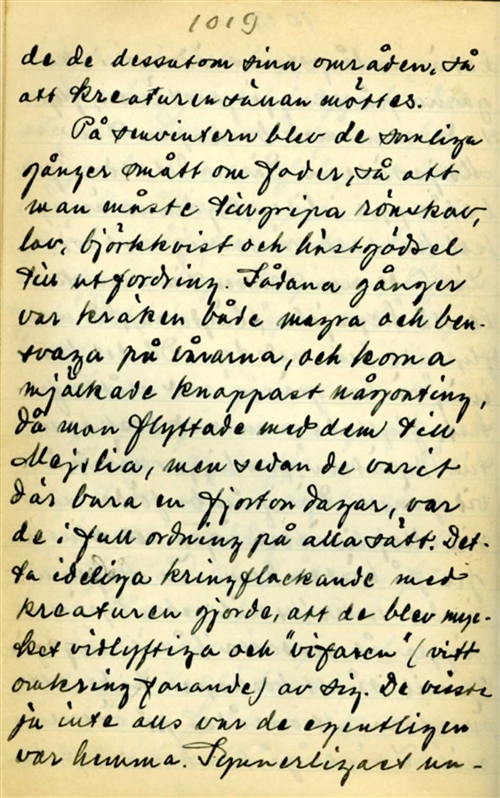 1019
de de dessutom sina områden, så
att kreaturen sällan möttes.
På senvintern blev de somliga
gånger smått om foder, så att
man måste tillgripa rönskav,
lav, björkkvist och hästgödsel
till utfordring. Sådana gånger
var kräken både magra och ben-
svaga på vårarna, och korna
mjölkade knappast någonting,
då man flyttade med dem till
Mejslia, men sedan de varit
där bara en fjorton dagar, var
de i full ordning på alla sätt. Det-
ta ideliga kringflackande med
kreaturen gjorde, att de blev myc-
ket vidlyftiga och "vifaren" (vitt
omkring farande) av sig. De visste
ju inte alls var de egentligen
var hemma. Synnerligast un-